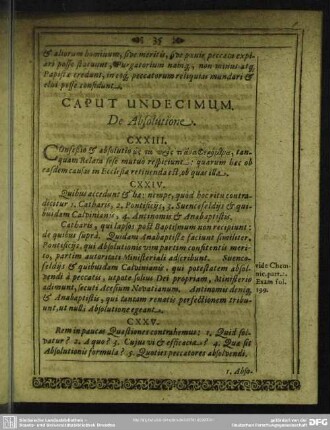 35
& aliorum hominum, sive meritis, sive pœnis peccata expi-
ari posse statuunt, Purgatorium namq́;, non minus atq;
Papistæ credunt, in eoq́; peccatorum reliquias mundari &
elui posse confidunt.
CAPUT UNDECIMUM,
De Absolutione.
CXXIII.
Confessio & absolutio tan-
quam Relata sese mutuo respiciunt: quarum hæc ob
easdem causas in Ecclesia retinenda est, ob quas illa.
CXXIV.
Quibus accedunt & hæ; nempe, quod hoc ritu contra-
dicitur 1. Catharis, 2. Pontificijs, 3. Suencofeldijs & qui-
busdam Calvinianis, 4. Antinomis & Anabaptistis.
Catharis, qui lapsos post Baptismum non recipiunt:
de quibus suprà. Quidam Anabaptistæ faciunt similiter,
Pontificijs, qui Absolutionis vim partim consistenti meri-
to, partim autoritati Ministeriali adscribunt. Suenco-
feldijs & quibusdam Calvinianis, qui potestatem absol-
vendi à peccatis, utpote soleus Dei propriam, Ministerio
adimunt, secuti Acesium Novatianum. Antinomis deniq;
& Anabaptistis, qui tantam renatis perfectionem tribu-
unt, ut nulli Absolutione egeant.
vide Chem-
nic. part. 2.
Exam fol.
199.
CXXV.
Rem in paucas Quæstiones contrahemus: 1. Quid sol-
vatur? 2. A quo? 3. Cujus vi & efficacia? 4. Quæ sit
Absolutionis formula? 5. Quoties peccatores absolvendi.
1. Abso-